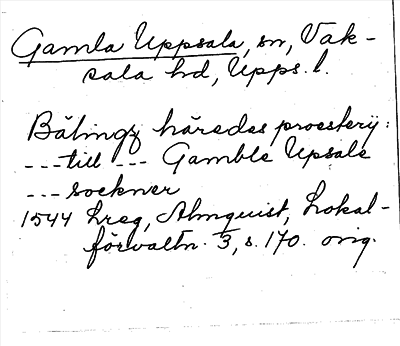 Gamla Uppsala, sn, Vak-
sala hd, Upps. l.
Bälingz häredes proesterij:
---till --- Gamble Upsale
--- soekner
1544 Lreg, Almquist, Lokal-
förvaltn. 3, s. 170. orig.